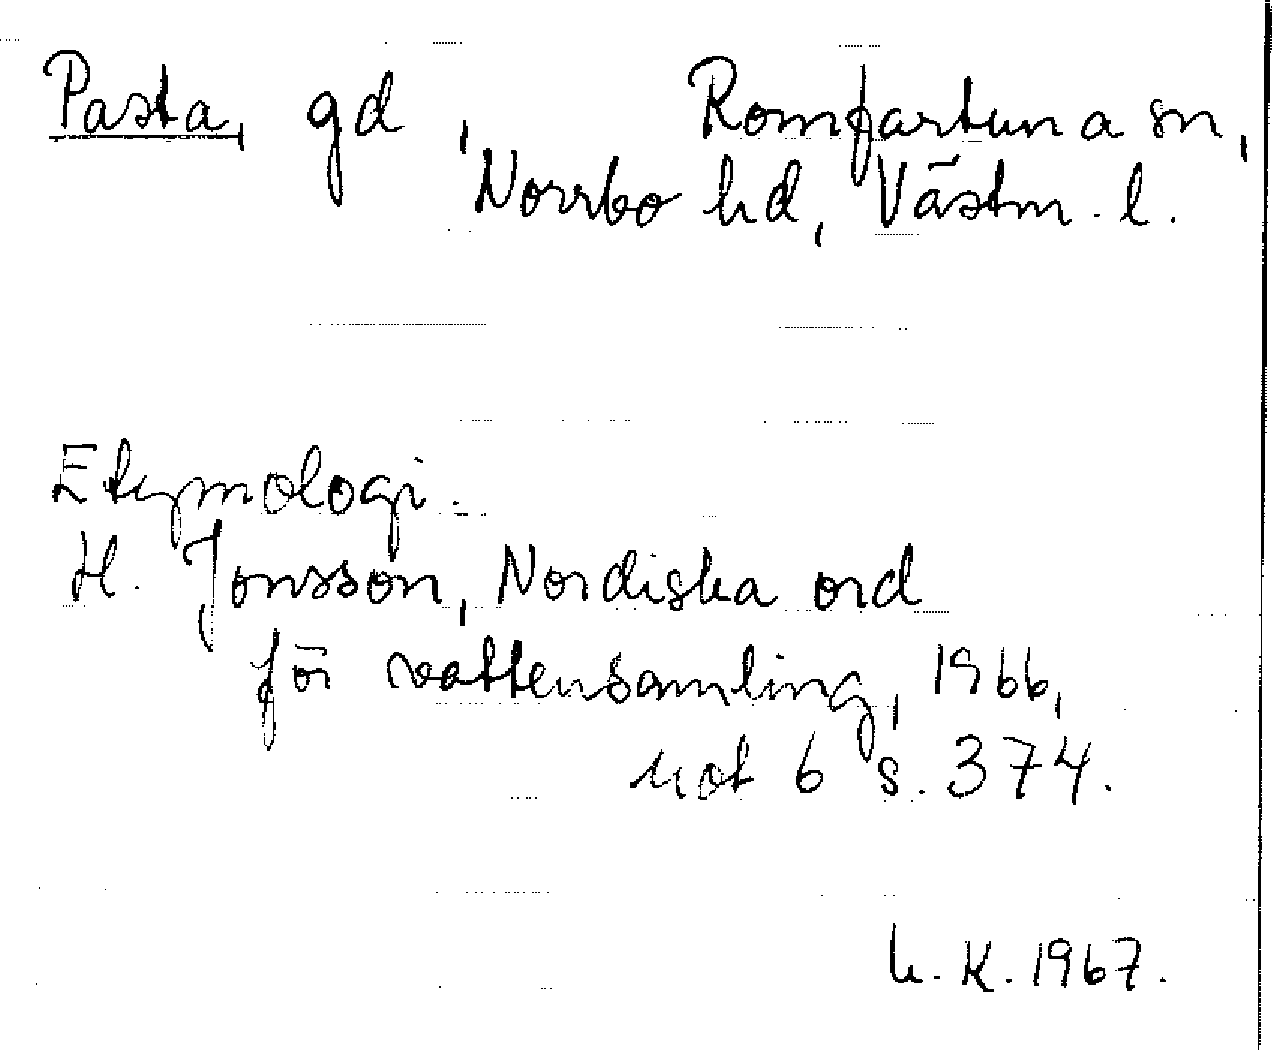 Pasta, gd, Romfartuna sn,
Norrbo hd, Västm. l.
Etymologi.
H. Jonsson, Nordiska ord
för vattensamling, 1966,
not 6 s. 374.
K. 1967.